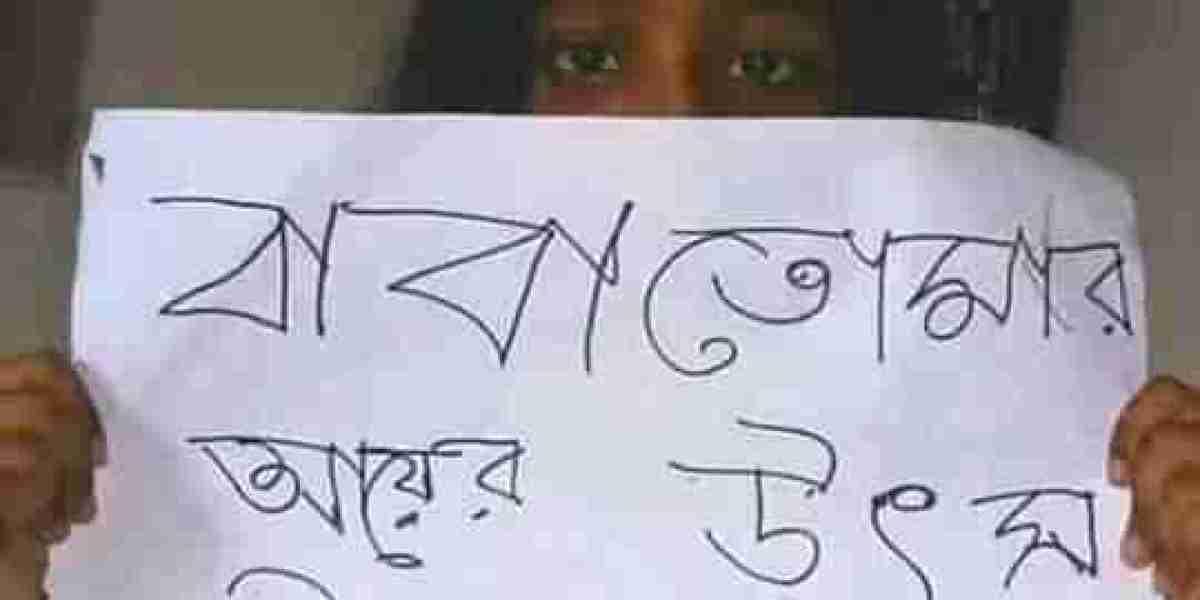 বাবা তোমার
আয়ের উৎস